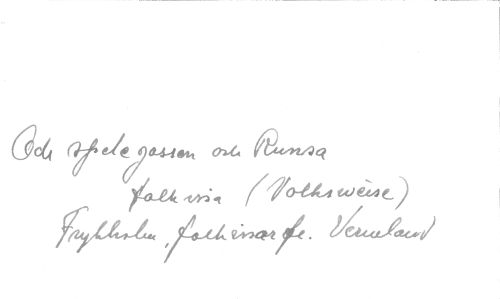 Och spelegossen och Runsa
folkvisa (Volksweise)
Frykholm, folkvisor fr. Vermland